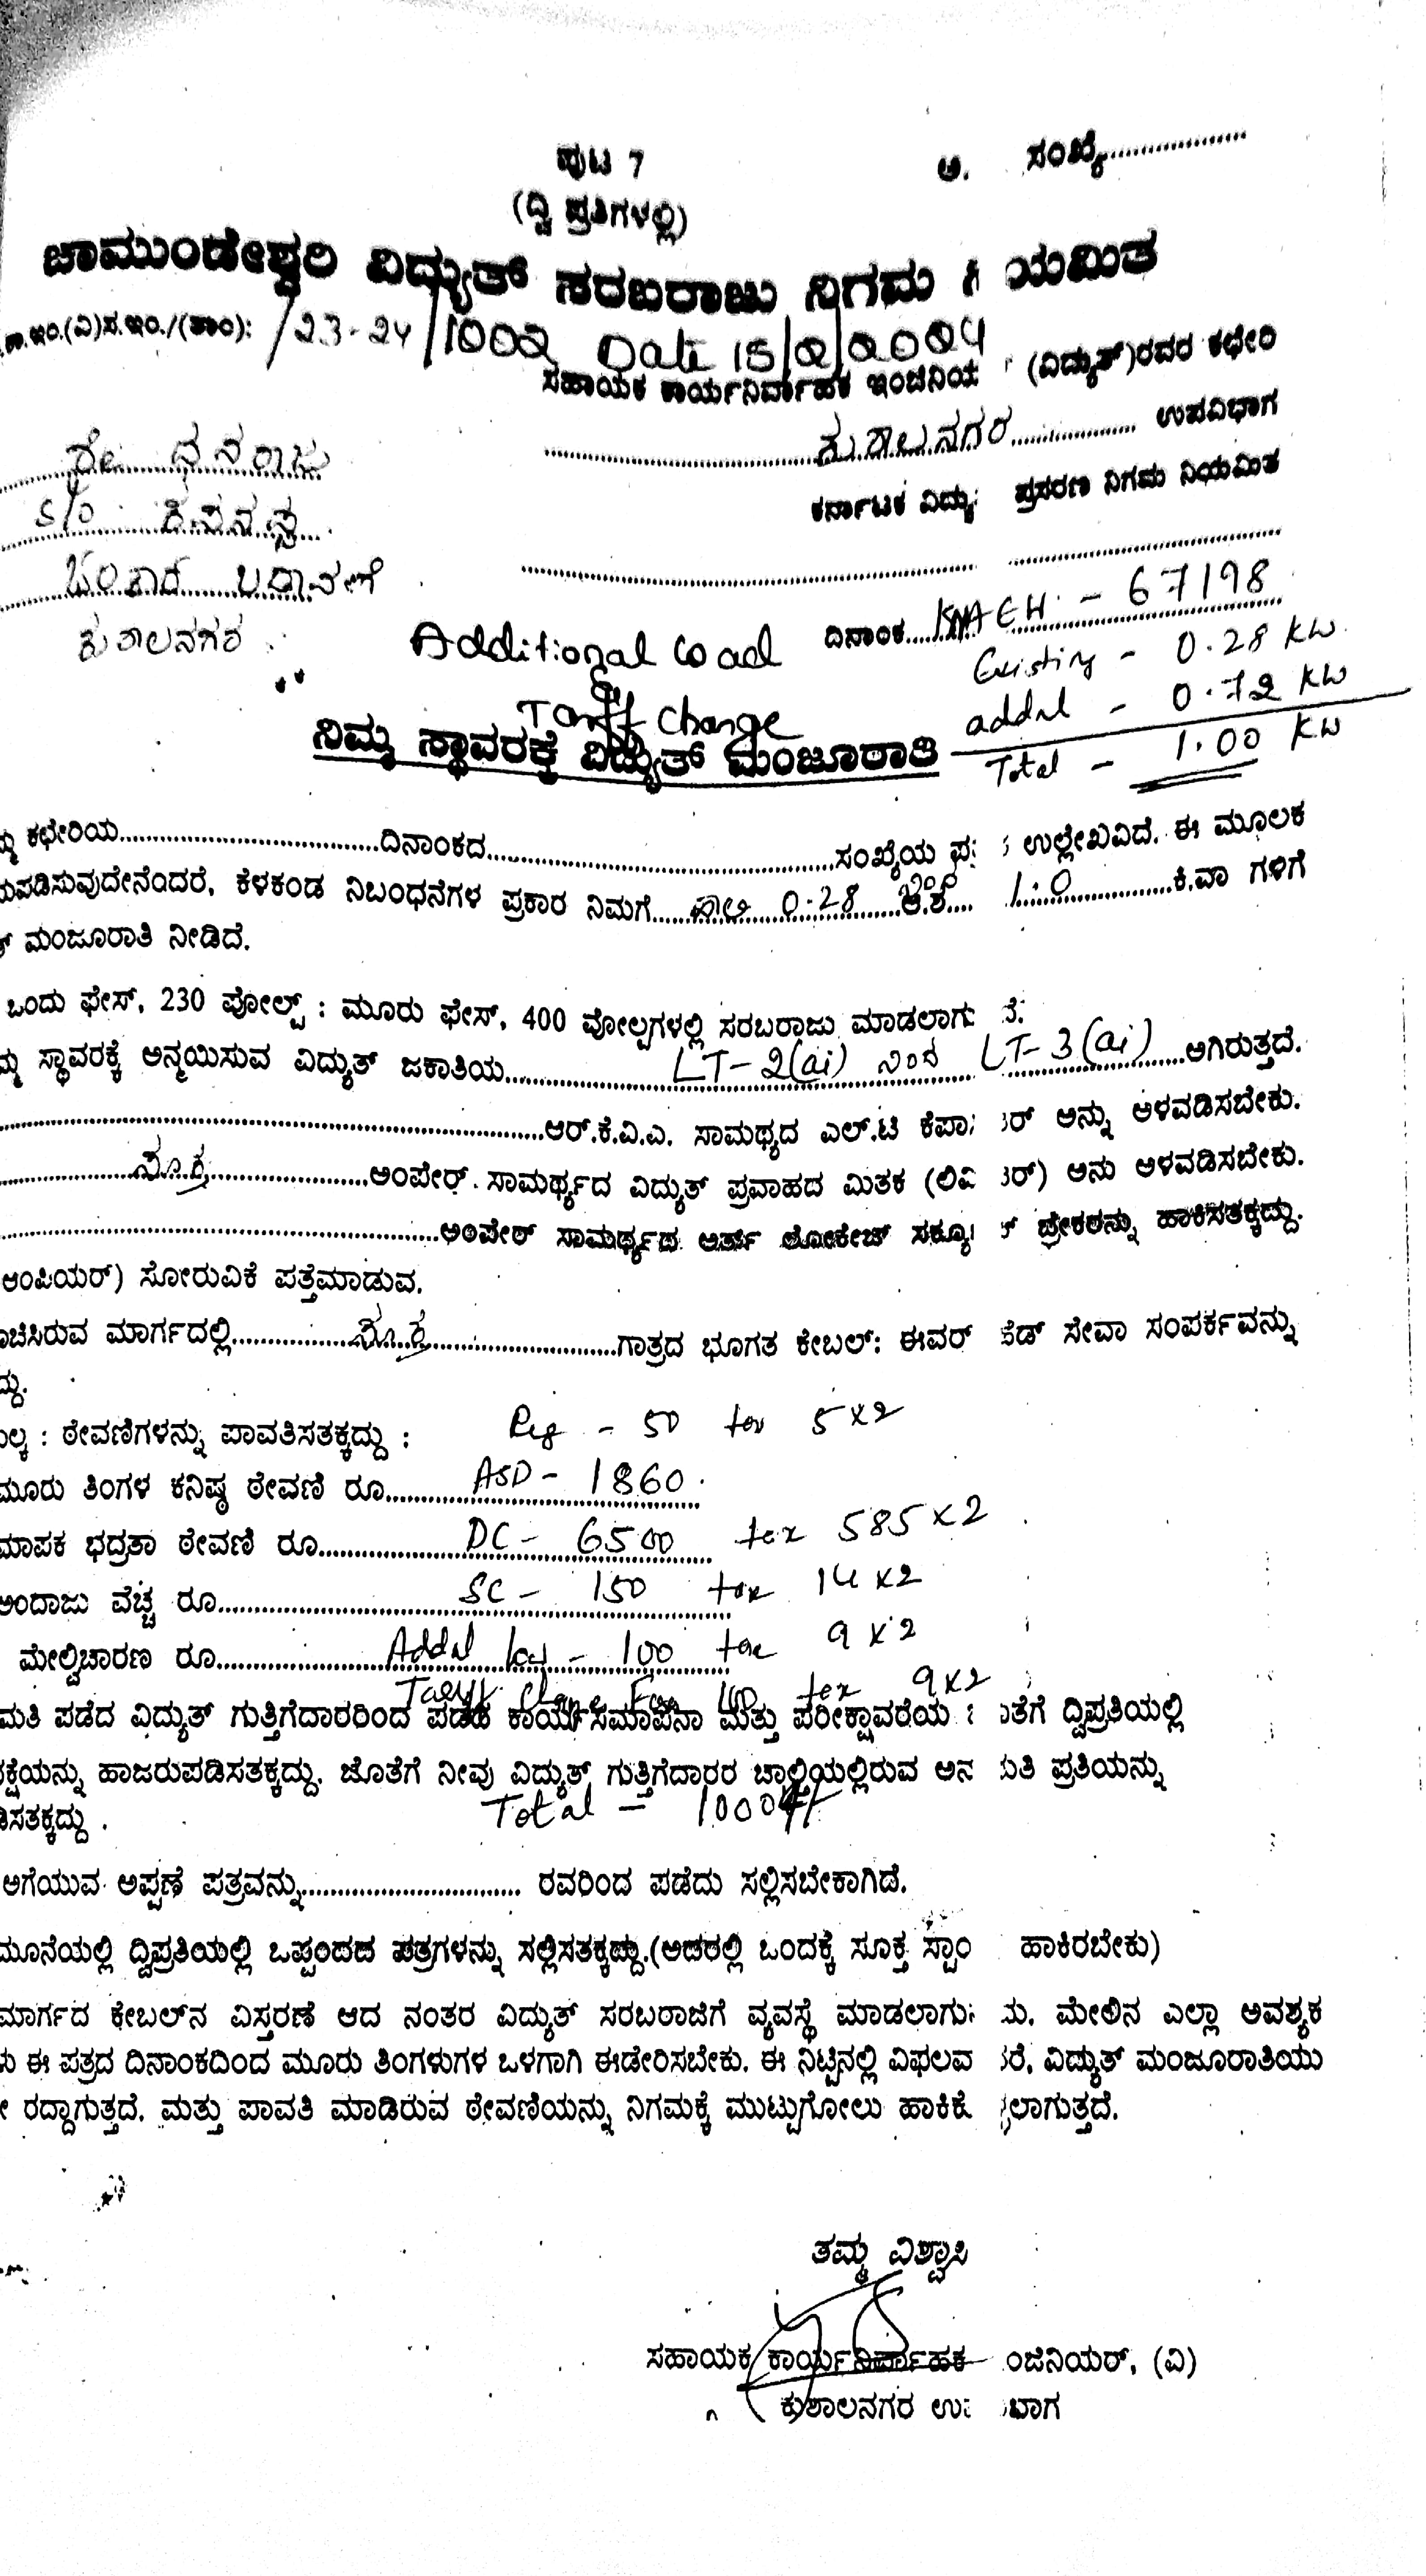 ಪುಟ 7
ಅ. ಸಂಖ್ಯೆ....................
(ದ್ವಿ ಪ್ರತಿಗಳಲ್ಲಿ)
ಚಾಮುಂಡೇಶ್ವರಿ ವಿದ್ಯುತ್ ಸರಬರಾಜು ನಿಗಮ ಯಮಿತ
ಇಂ.(ವಿ)ಸ.ಇಂ./(ತಾಂ): /23-24/1002 Date 15/2/2024
ಸಹಾಯಕ ಕಾರ್ಯನಿರ್ವಾಹಕ ಇಂಜಿನಿಯ (ವಿದ್ಯುತ್)ರವರ ಕಛೇರಿ
ಕುಶಾಲನಗರ.................. ಉಪವಿಭಾಗ
ಧನರಾಜು
S/o
ಕರ್ನಾಟಕ ವಿದ್ಯು ಪ್ರಸರಣ ನಿಗಮ ನಿಯಮಿತ
ಬಡಾವಣೆ
ಕುಶಾಲನಗರ
ದಿನಾಂಕ.... - 67198
Additional Load
Existing - 0.28 KW
Tariff Change
addnl - 0.72 KW
ನಿಮ್ಮ ಸ್ಥಾವರಕ್ಕೆ ವಿದ್ಯುತ್ ಮಂಜೂರಾತಿ
Total - 1.00 KW
ಕಛೇರಿಯ....................ದಿನಾಂಕದ....................ಸಂಖ್ಯೆಯ ಪ ಉಲ್ಲೇಖವಿದೆ. ಈ ಮೂಲಕ
ಪಡಿಸುವುದೇನೆಂದರೆ, ಕೆಳಕಂಡ ನಿಬಂಧನೆಗಳ ಪ್ರಕಾರ ನಿಮಗೆ..... 0.28 .....ಅ.ಶ.... 1.0 ..........ಕಿ.ವಾ ಗಳಿಗೆ
ಮಂಜೂರಾತಿ ನೀಡಿದೆ.
ಒಂದು ಫೇಸ್, 230 ವೋಲ್ಟ್ : ಮೂರು ಫೇಸ್, 400 ವೋಲ್ಟಗಳಲ್ಲಿ ಸರಬರಾಜು ಮಾಡಲಾಗು ತೆ:
ಸ್ಥಾವರಕ್ಕೆ ಅನ್ವಯಿಸುವ ವಿದ್ಯುತ್ ಜಕಾತಿಯ.......... LT-2(ai) ನಿಂದ LT-3(ai) ....ಆಗಿರುತ್ತದೆ.
....................ಆರ್.ಕೆ.ವಿ.ಎ. ಸಾಮರ್ಥ್ಯದ ಎಲ್.ಟಿ ಕೆಪಾ ರ್ ಅನ್ನು ಅಳವಡಿಸಬೇಕು.
..........ಸೂಕ್ತ..........ಅಂಪೇರ್ ಸಾಮರ್ಥ್ಯದ ವಿದ್ಯುತ್ ಪ್ರವಾಹದ ಮಿತಕ (ಲಿಮಿ ರ್) ಅನು ಅಳವಡಿಸಬೇಕು.
....................ಅಂಪೇರ್ ಸಾಮರ್ಥ್ಯದ ಅರ್ತ್ ಲೋಕೇಜ್ ಸಕ್ಯೂ ಬ್ರೇಕರನ್ನು ಹಾಕಿಸತಕ್ಕದ್ದು.
ಆಂಪಿಯರ್) ಸೋರುವಿಕೆ ಪತ್ತೆಮಾಡುವ.
ಚಿಸಿರುವ ಮಾರ್ಗದಲ್ಲಿ..........ಸೂಕ್ತ..........ಗಾತ್ರದ ಭೂಗತ ಕೇಬಲ್: ಈವರ್ ಹೆಡ್ ಸೇವಾ ಸಂಪರ್ಕವನ್ನು
ದ್ದು.
ಲ್ಕ : ಠೇವಣಿಗಳನ್ನು ಪಾವತಿಸತಕ್ಕದ್ದು : Reg - 50 tax 5x2
ಮೂರು ತಿಂಗಳ ಕನಿಷ್ಠ ಠೇವಣಿ ರೂ.......... ASD - 1860
ಮಾಪಕ ಭದ್ರತಾ ಠೇವಣಿ ರೂ.......... DC - 6500 tax 585x2
ಅಂದಾಜು ವೆಚ್ಚ ರೂ.......... SC - 150 tax 14x2
ಮೇಲ್ವಿಚಾರಣ ರೂ.......... Addnl - 100 tax 9x2
Tariff Change Fee 100 tax 9x2
ಮತಿ ಪಡೆದ ವಿದ್ಯುತ್ ಗುತ್ತಿಗೆದಾರರಿಂದ ಪಡೆದ ಕಾರ್ಯಸಮಾಪನಾ ಮತ್ತು ಪರೀಕ್ಷಾವರೆಯ ತೆಗೆ ದ್ವಿಪ್ರತಿಯಲ್ಲಿ
ಕ್ಷೆಯನ್ನು ಹಾಜರುಪಡಿಸತಕ್ಕದ್ದು. ಜೊತೆಗೆ ನೀವು ವಿದ್ಯುತ್ ಗುತ್ತಿಗೆದಾರರ ಚಾಲ್ತಿಯಲ್ಲಿರುವ ಅನ ಮತಿ ಪ್ರತಿಯನ್ನು
ಸತಕ್ಕದ್ದು. Total - 10004/-
ಅಗೆಯುವ ಅಪ್ಪಣೆ ಪತ್ರವನ್ನು.............................. ರವರಿಂದ ಪಡೆದು ಸಲ್ಲಿಸಬೇಕಾಗಿದೆ.
ಮೂನೆಯಲ್ಲಿ ದ್ವಿಪ್ರತಿಯಲ್ಲಿ ಒಪ್ಪಂದದ ಪತ್ರಗಳನ್ನು ಸಲ್ಲಿಸತಕ್ಕದ್ದು.(ಅದರಲ್ಲಿ ಒಂದಕ್ಕೆ ಸೂಕ್ತ ಸ್ಟಾಂ ಹಾಕಿರಬೇಕು)
ಮಾರ್ಗದ ಕೇಬಲ್‌ನ ವಿಸ್ತರಣೆ ಆದ ನಂತರ ವಿದ್ಯುತ್ ಸರಬರಾಜಿಗೆ ವ್ಯವಸ್ಥೆ ಮಾಡಲಾಗು ದು. ಮೇಲಿನ ಎಲ್ಲಾ ಅವಶ್ಯಕ
ಈ ಪತ್ರದ ದಿನಾಂಕದಿಂದ ಮೂರು ತಿಂಗಳುಗಳ ಒಳಗಾಗಿ ಈಡೇರಿಸಬೇಕು. ಈ ನಿಟ್ಟಿನಲ್ಲಿ ವಿಫಲವ ರೆ, ವಿದ್ಯುತ್ ಮಂಜೂರಾತಿಯು
ರದ್ದಾಗುತ್ತದೆ. ಮತ್ತು ಪಾವತಿ ಮಾಡಿರುವ ಠೇವಣಿಯನ್ನು ನಿಗಮಕ್ಕೆ ಮುಟ್ಟುಗೋಲು ಹಾಕಿಕೆ ಲಾಗುತ್ತದೆ.
ತಮ್ಮ ವಿಶ್ವಾಸಿ
ಸಹಾಯಕ ಕಾರ್ಯನಿರ್ವಾಹಕ ಂಜಿನಿಯರ್, (ವಿ)
ಕುಶಾಲನಗರ ಉ ಭಾಗ